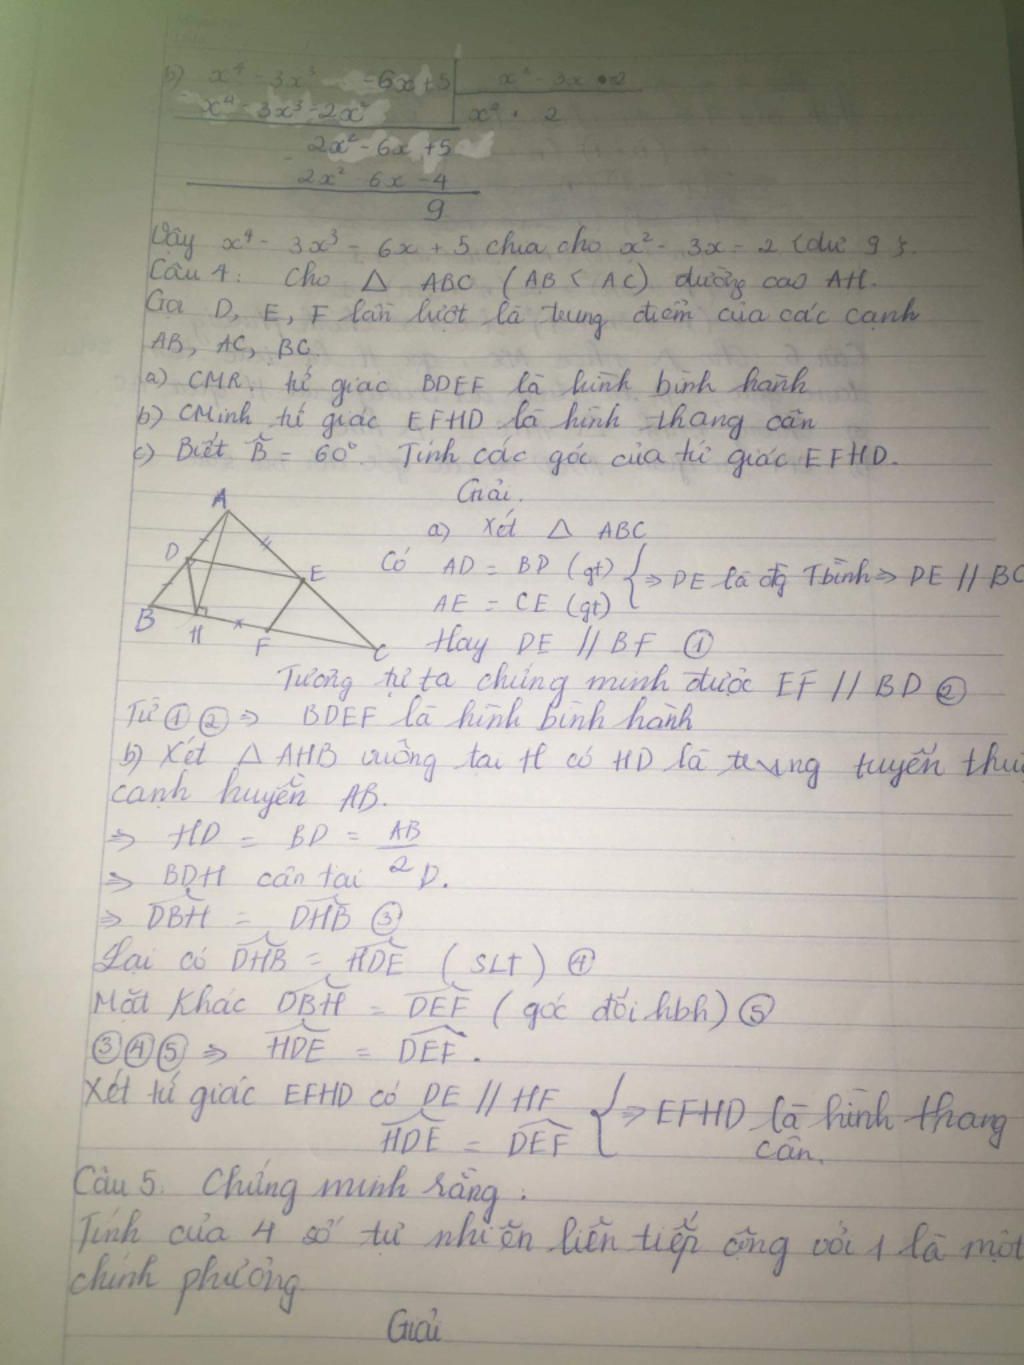 b) x⁴ - 3x³ - 6x + 5 | x² - 3x - 2
x⁴ - 3x³ - 2x² | x² + 2
2x² - 6x + 5
2x² 6x - 4
9
Vậy x⁴ - 3x³ - 6x + 5 chia cho x² - 3x - 2 (dư 9).
Câu 4: Cho △ ABC (AB < AC) đường cao AH.
Gọi D, E, F lần lượt là trung điểm của các cạnh
AB, AC, BC.
a) CMR. tứ giác BDEF là hình bình hành
b) CMinh tứ giác EFHD là hình thang cân
c) Biết B̂ = 60°. Tính các góc của tứ giác EFHD.
Giải.
A
D
E
B
H
F
C
a) Xét △ ABC
Có AD = BD (gt)
AE = CE (gt)
} ⇒ DE là đg Tbình ⇒ DE // BC
Hay DE // BF ①
Tương tự ta chứng minh được EF // BD ②
Từ ① ② ⇒ BDEF là hình bình hành
b) Xét △ AHB vuông tại H có HD là trung tuyến thuộ
cạnh huyền AB.
⇒ HD = BD = AB/2
⇒ BDH cân tại D.
⇒ DBH = DHB ③
Lại có DHB = HDE (SLT) ④
Mặt Khác DBH = DEF (góc đối hbh) ⑤
③④⑤ ⇒ HDE = DEF.
Xét tứ giác EFHD có DE // HF
HDE = DEF
} ⇒ EFHD là hình thang
cân.
Câu 5. Chứng minh rằng:
Tính của 4 số tự nhiên liên tiếp cộng với 1 là một
chính phương.
Giải